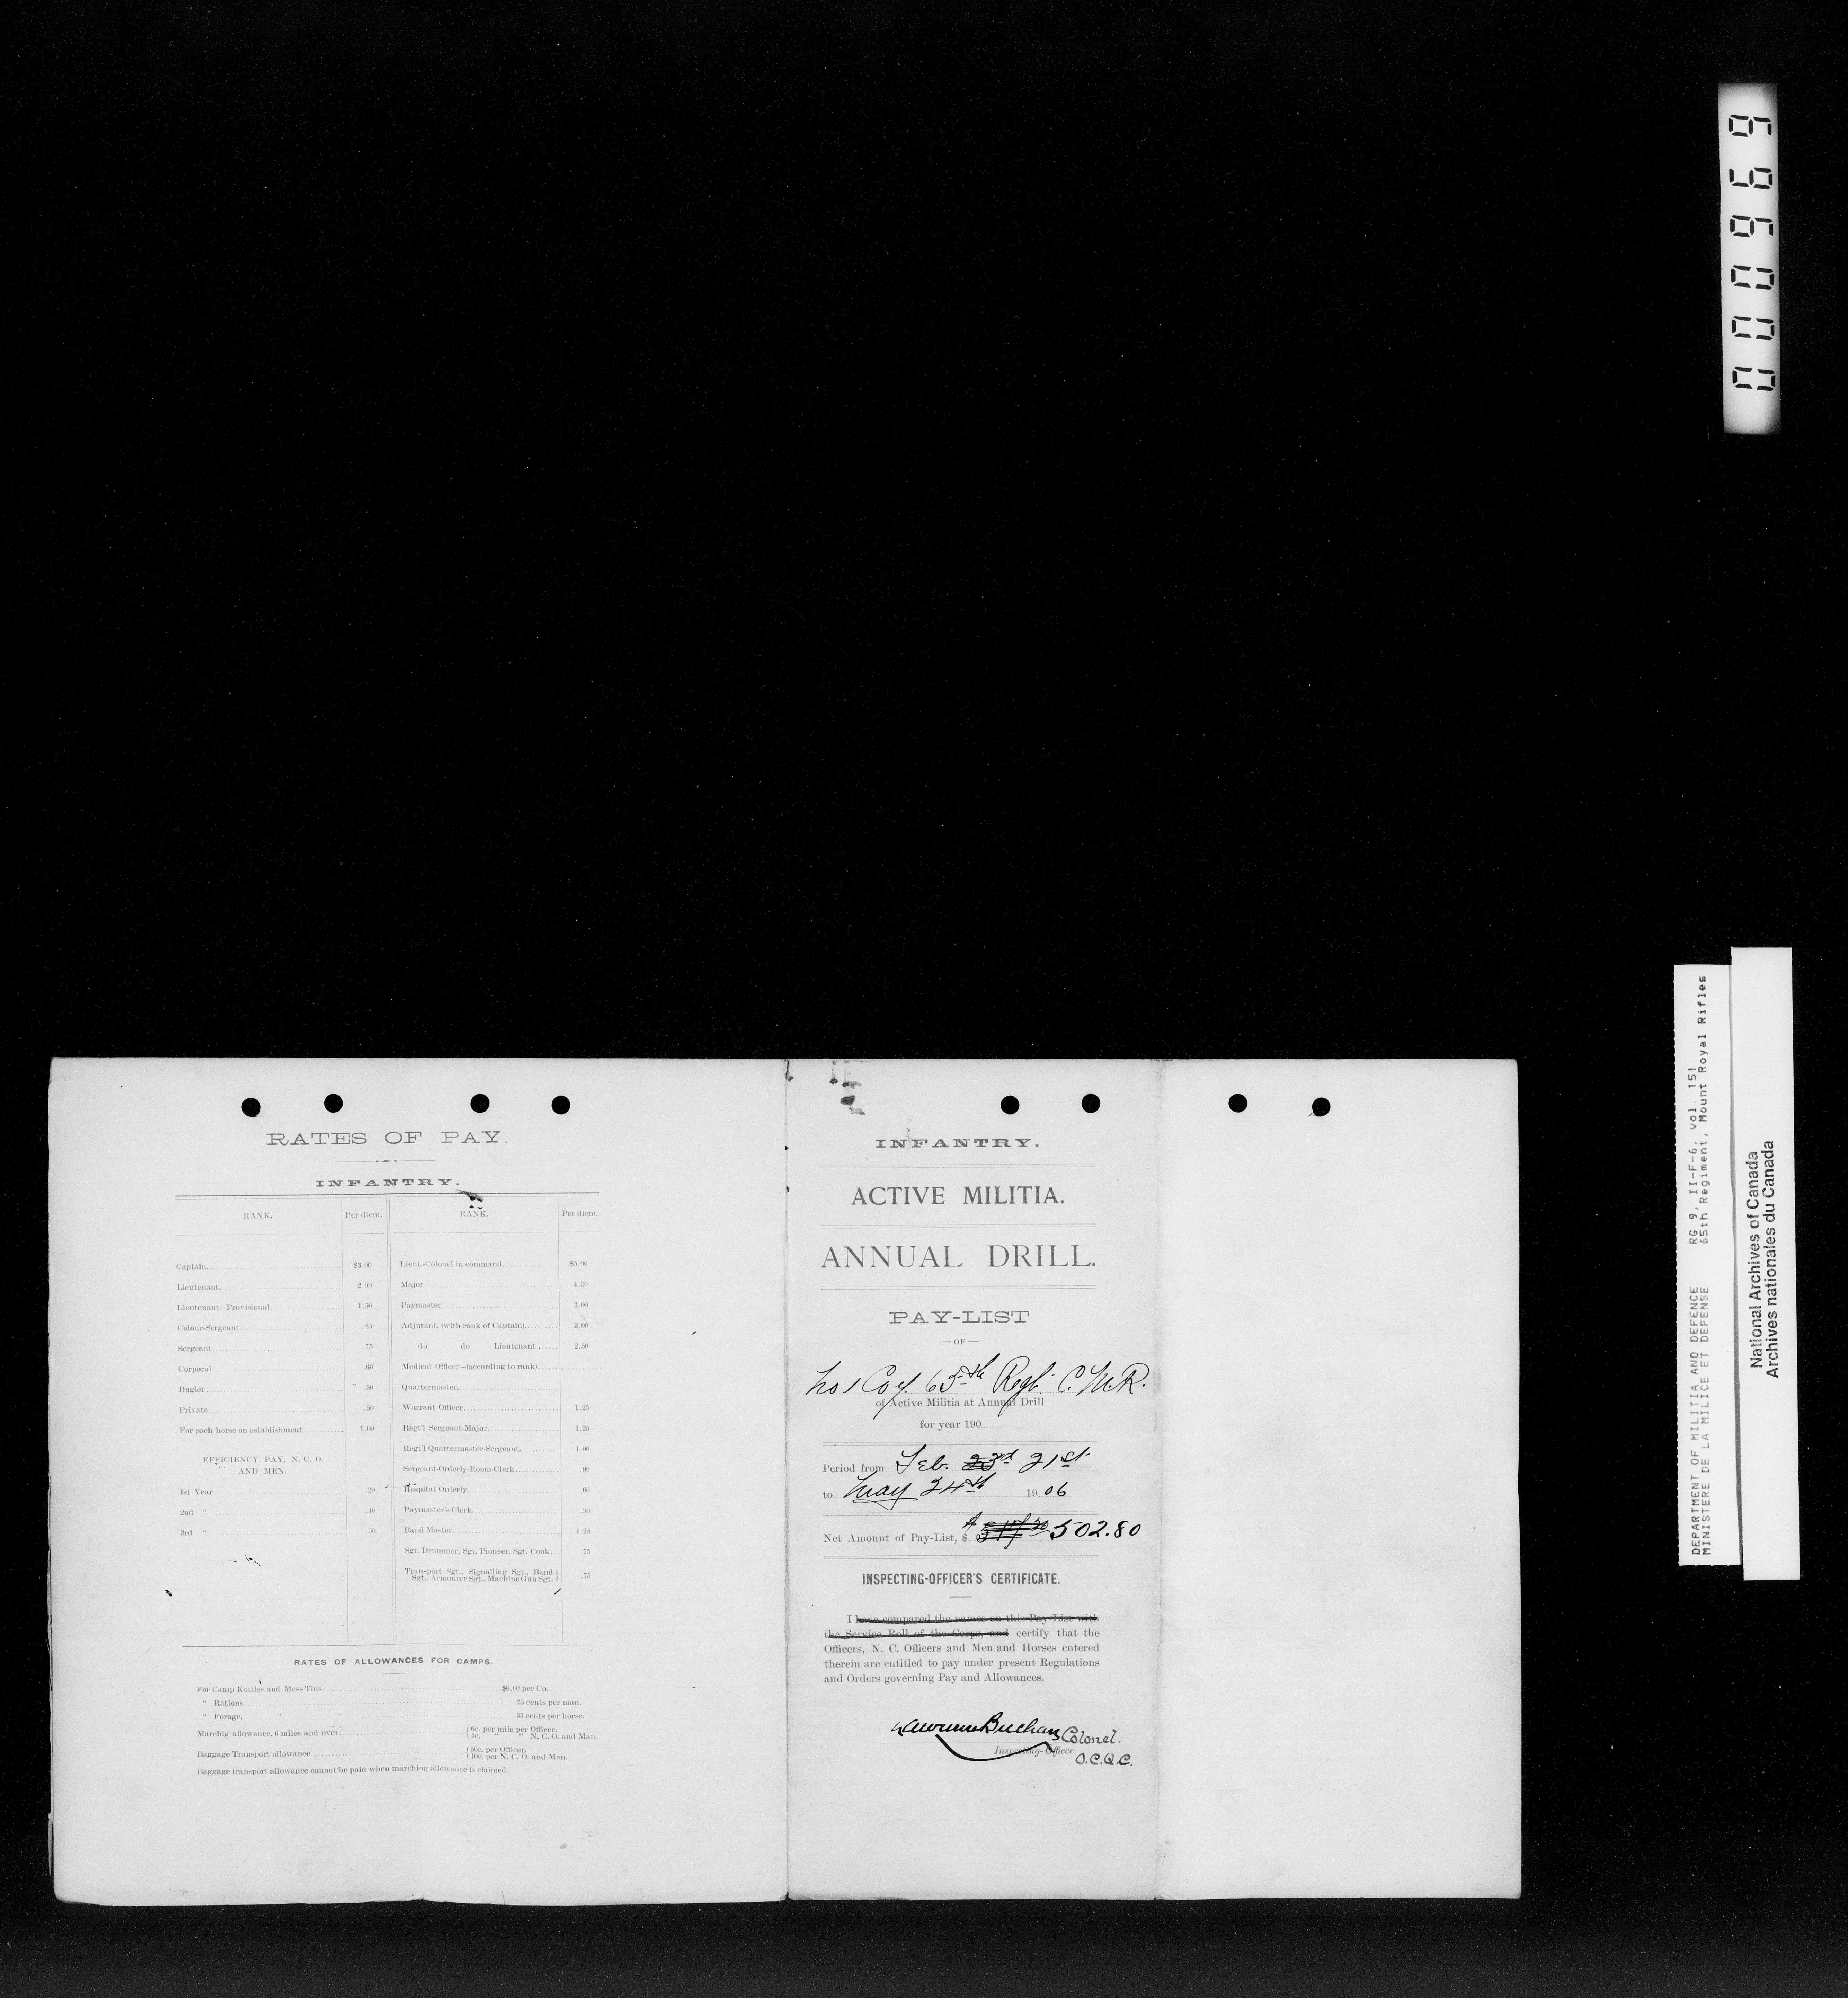 RATES OF PAY.
INFANTRY.
RANK. Per diem. RANK. Per diem.
Captain. $3.00 Lieut.-Colonel in command $5.00
Lieutenant. 2.00 Major 4.00
Lieutenant—Provisional 1.50 Paymaster 3.00
Colour-Sergeant .85 Adjutant, (with rank of Captain) 3.00
Sergeant .75 do do Lieutenant 2.50
Corporal .60 Medical Officer—(according to rank)
Bugler .50 Quartermaster
Private .50 Warrant Officer 1.25
For each horse on establishment 1.00 Regt'l Sergeant-Major 1.25
Regt'l Quartermaster-Sergeant 1.00
EFFICIENCY PAY, N. C. O.
AND MEN.
Sergeant-Orderly-Room-Clerk .90
1st Year .20 Hospital Orderly .60
2nd " .40 Paymaster's Clerk .90
3rd " .50 Band Master 1.25
Sgt. Drummer, Sgt. Pioneer, Sgt. Cook .75
Transport Sgt., Signalling Sgt., Band
Sgt., Armourer Sgt., Machine Gun Sgt. .75
RATES OF ALLOWANCES FOR CAMPS.
For Camp Kettles and Mess Tins $6.00 per Co.
" Rations 25 cents per man.
" Forage, " " 35 cents per horse.
Marchig allowance, 6 miles and over 6c. per mile per Officer.
4c. " " N. C. O. and Man.
Baggage Transport allowance 50c. per Officer.
10c. per N. C. O. and Man.
Baggage transport allowance cannot be paid when marching allowance is claimed.
INFANTRY.
ACTIVE MILITIA.
ANNUAL DRILL.
PAY-LIST
—OF—
No 1 Coy. 65th Regt. C.M.R.
of Active Militia at Annual Drill
for year 190
Period from Feb. 23rd 21st
to May 24th 1906
Net Amount of Pay-List, $ 502.80
INSPECTING-OFFICER'S CERTIFICATE.
I have compared the names on this Pay-List with
the Service Roll of the Corps, and certify that the
Officers, N. C. Officers and Men and Horses entered
therein are entitled to pay under present Regulations
and Orders governing Pay and Allowances.
Lawrence Buchan Colonel.
Inspecting-Officer
O.C.Q.C.
000969
DEPARTMENT OF MILITIA AND DEFENCE RG 9, II-F-6, vol. 151
MINISTERE DE LA MILICE ET DEFENSE 65th Regiment, Mount Royal Rifles
National Archives of Canada
Archives nationales du Canada